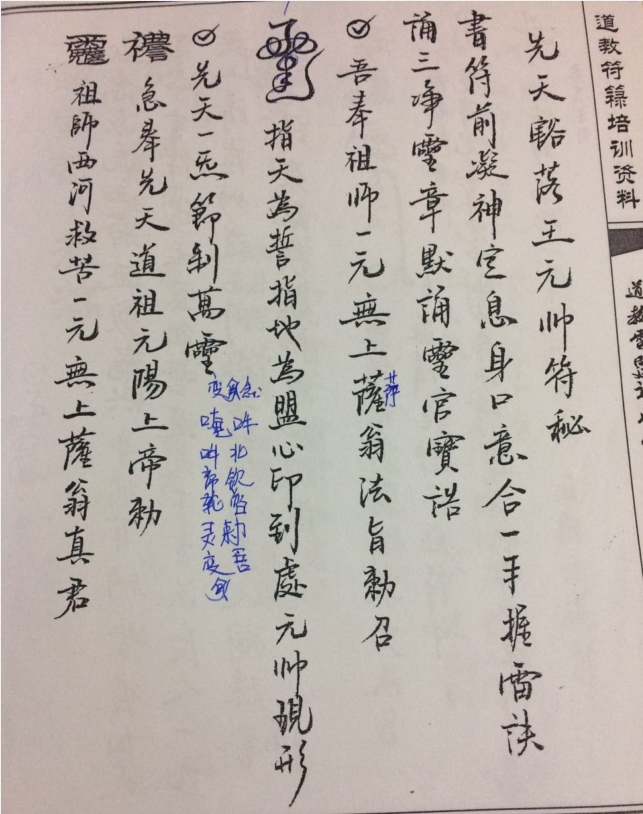 道教符籙培训资料
先天豁落王元帅符秘
書符前凝神定息身口意合一手握雷訣
誦三淨靈章默誦靈官寶誥
吾奉祖师一元無上薩翁法旨勅召
指天為誓指地為盟心印到處元帅現形
先天一炁節制萬靈
急奉先天道祖元陽上帝勅
祖師西河救苦一元無上薩翁真君